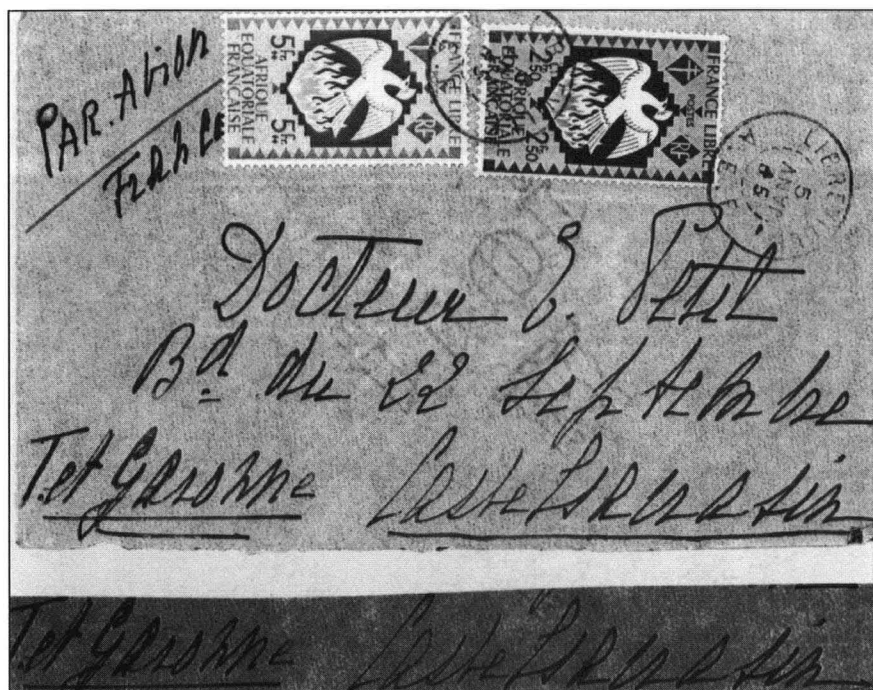 PAR. AVION
FRANCE
5 fr. 5 fr.
AFRIQUE
EQUATORIALE
FRANCAISE
RF
FRANCE LIBRE
POSTES
RF
2f.50 2f.50
AFRIQUE
EQUATORIALE
FRANCAISE
LIBREVILLE
5
JANV
45
A.E.F.
Docteur E. Petit
Bd du 22 Septembre
T. et Garonne Castelsarrasin
T. et Garonne Castelsarrasin